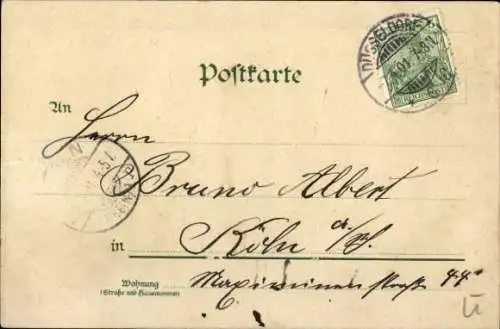 DÜSSELDORF
Postkarte
An
Herrn
Bruno Albert
in Köln a/Rh.
Wohnung
(Straße und Hausnummer)
Maximinenstraße 44